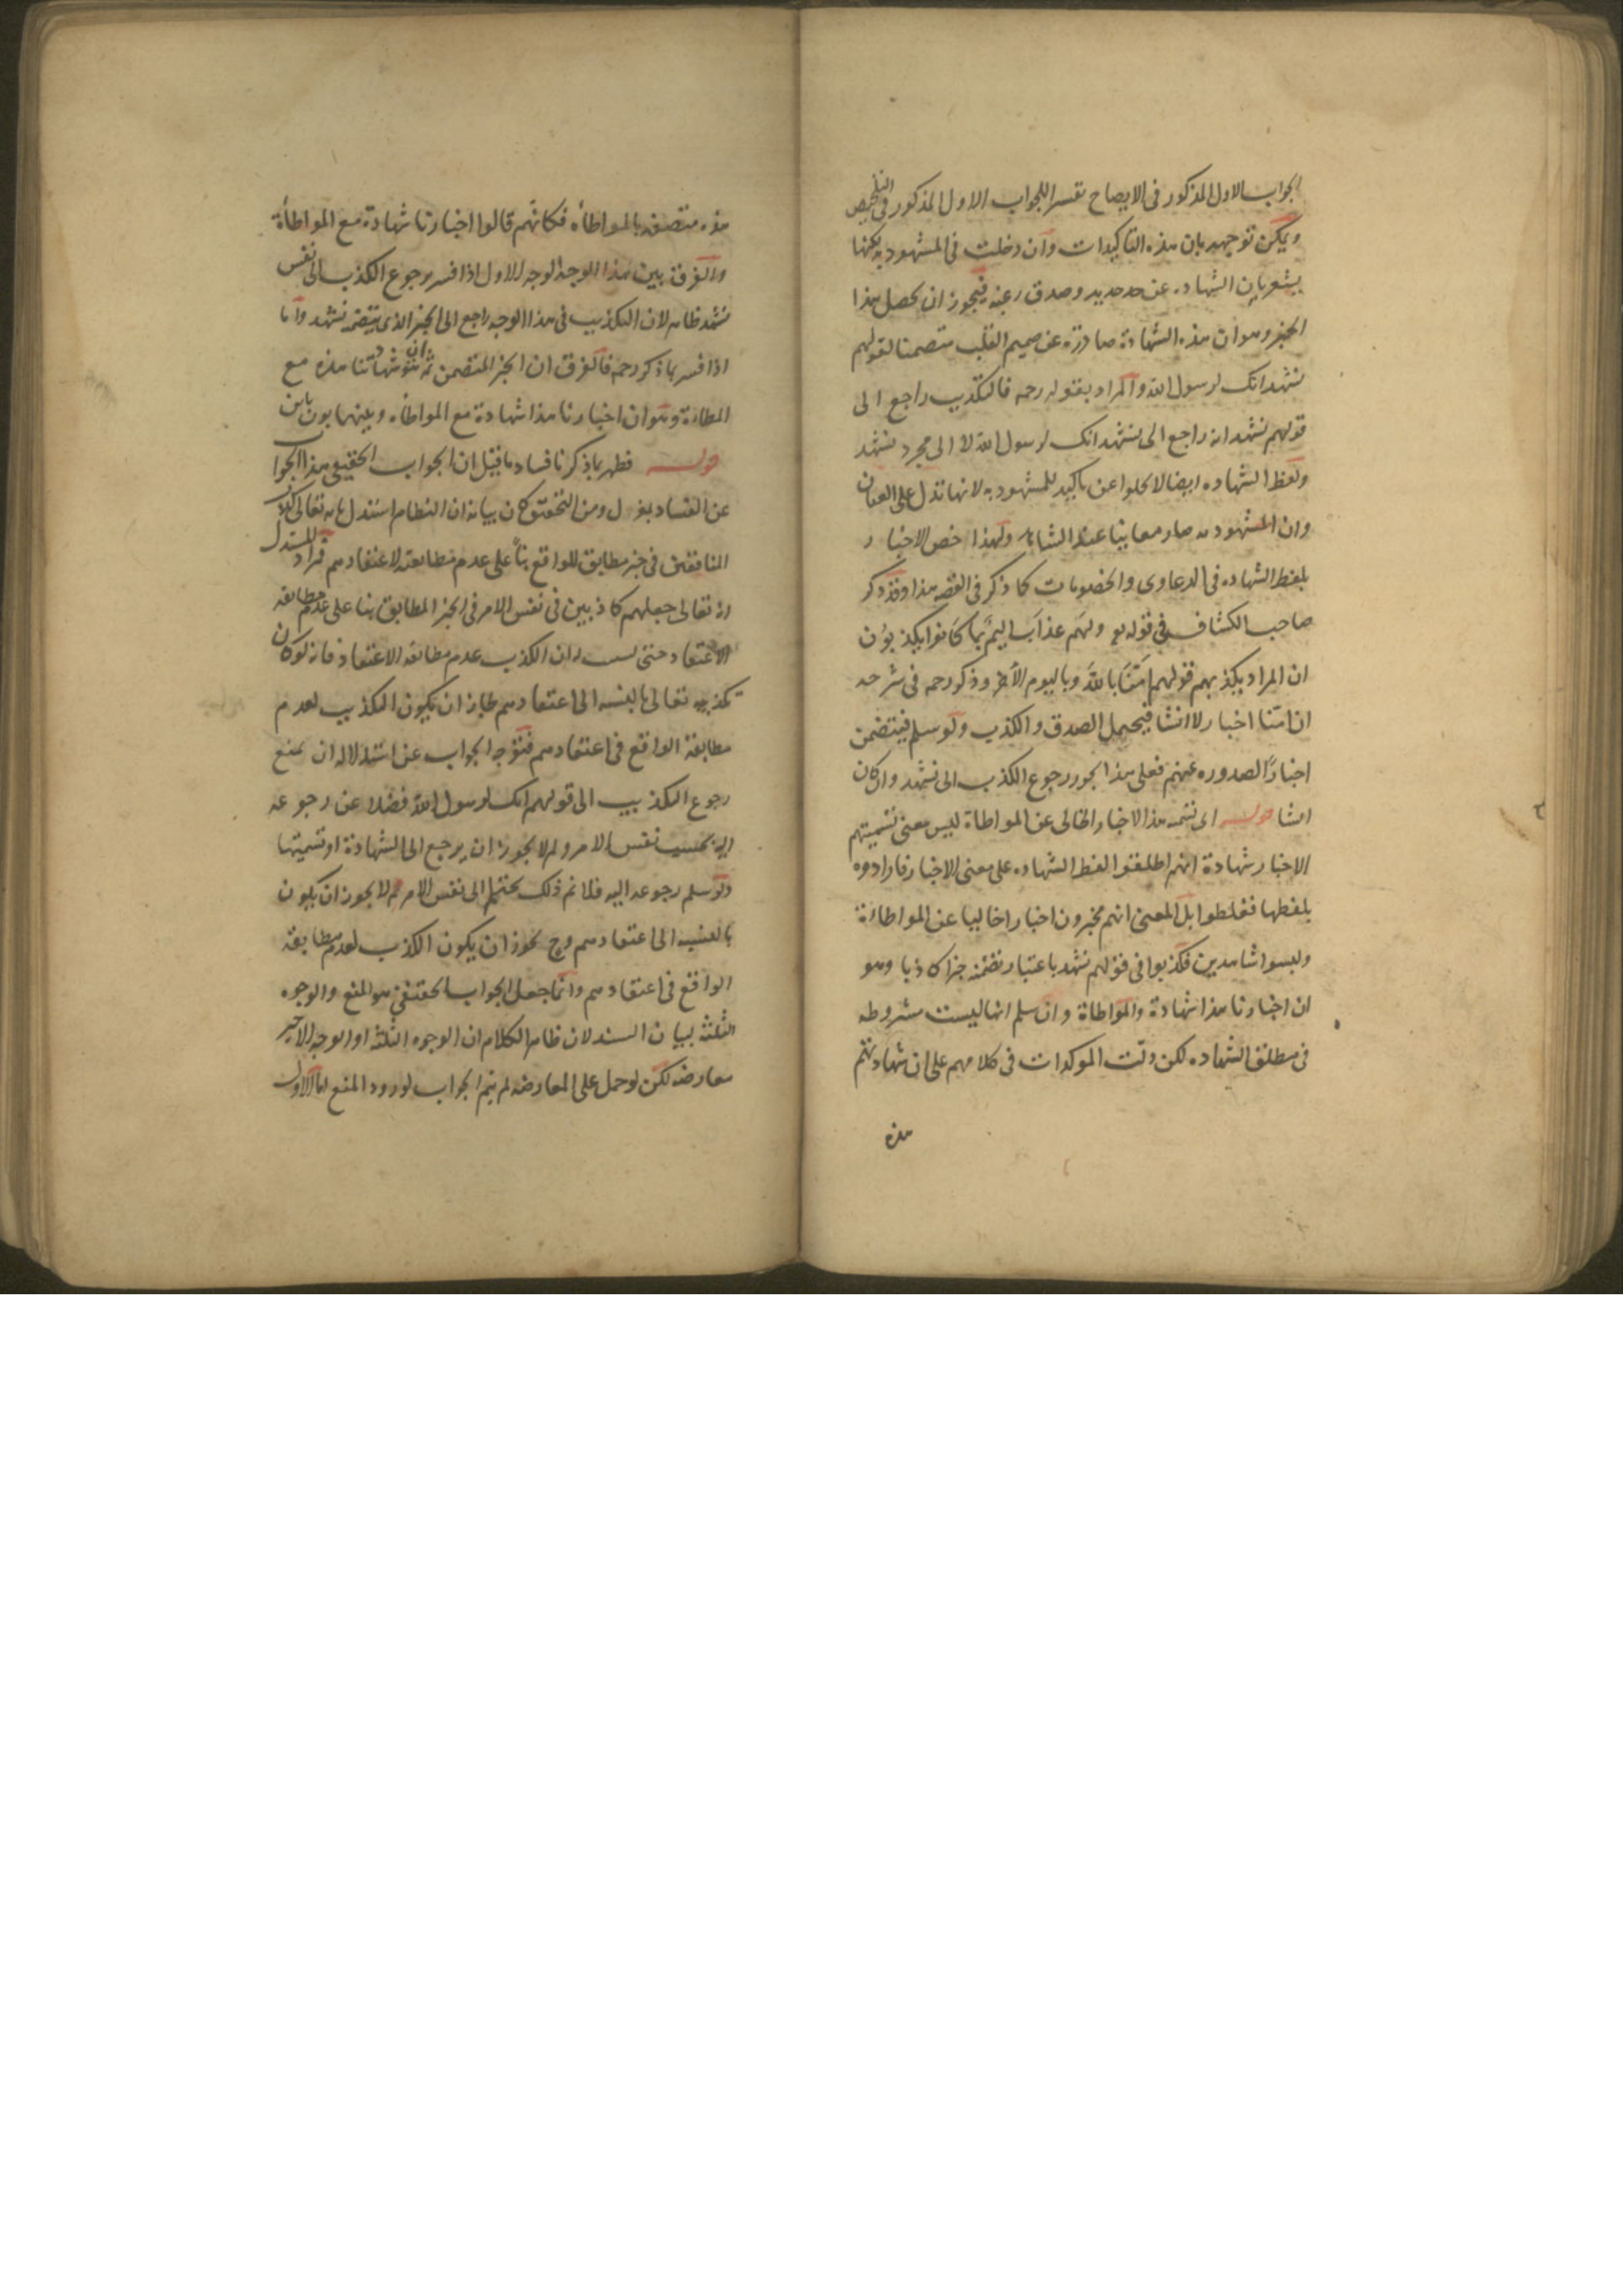 الجواب الاول المذكور فى الايضاح تفسير للجواب الاول المذكور فى التلخيص
ويمكن توجيهه بان هذه التاكيدات وان دخلت فى المشهود به لكنها
يشعر بان الشهاده عن جد جديد وصدق رغبة فيجوز ان يحصل بهذا
الخبر وهو ان هذه الشهادة صادرة عن صميم القلب متضمنا لقولهم
نشهد انك لرسول الله والمراد بقوله رحمه فالتكذيب راجع الى
قولهم نشهد انه راجع الى نشهد انك لرسول الله لا الى مجرد نشهد
ولفظ الشهاده ايضا لا يخلوا عن تاكيد للمشهود به لانها تدل على العيان
وان المشهود به صار معاينا عند الشاهد ولهذا خص الاخبار
بلفظ الشهاده فى الدعاوى والخصومات كما ذكر فى الفقه هذا وقد ذكر
صاحب الكشاف فى قوله تع ولهم عذاب اليم بما كانوا يكذبون
ان المراد بكذبهم قولهم امنا بالله وباليوم الآخر وذكر رحمه فى شرحه
ان امنا اخبار لا انشا فيحتمل الصدق والكذب ولو سلم فيتضمن
اخبارا لصدوره عنهم فعلى هذا يجوز رجوع الكذب الى نشهد وان كان
انشا قوله اى تسمية هذا الاخبار الخالى عن المواطاة ليس معنى تسميتهم
الاخبار شهادة انهم اطلقوا لفظ الشهاده على معنى الاخبار فارادوه
بلفظها فغلطوا بل المعنى انهم مخبرون اخبارا خاليا عن المواطاءة
وليسوا شاهدين فكذبوا فى قولهم نشهد باعتبار تضمنه خبرا كاذبا وهو
ان اخبارنا هذا شهادة والمواطاة وان سلم انها ليست مشروطه
فى مطلق الشهاده لكن دلت الموكدات فى كلامهم على ان شهادتهم
هذه
هذه متصفه بالمواطأه فكانهم قالوا اخبارنا شهادة مع المواطأة
والفرق بين هذا الوجه والوجه الاول اذا فسر برجوع الكذب الى نفس
نشهد ظاهر لان التكذيب فى هذا الوجه راجع الى الخبر الذى يتضمنه نشهد واما
اذا فسر بما ذكر رحمه فالفرق ان الخبر المتضمن ثمه هو ان شهادتنا هذه مع
المطاءة وهو ان اخبارنا هذا شهادة مع المواطأه وبينهما بون باين
قوله فظهر بما ذكرنا فساد ما قيل ان الجواب الحقيقى هذا الجواب
عن الفساد بمعزل ومن التحقيق كان بيانه ان النظام استدل بانه تعالى كذب
المنافقين فى خبر مطابق للواقع بناً على عدم مطابقته لاعتقادهم فمراد المستدل
انه تعالى جعلهم كاذبين فى نفس الامر فى الخبر المطابق بنا على عدم مطابقه
الاعتقاد حتى له ان الكذب عدم مطابقه الاعتقاد فانه لو كان
تكذيبه تعالى بالنسبه الى اعتقادهم جاز ان يكون التكذيب لعدم
مطابقة الواقع فى اعتقادهم فتوجه الجواب عن استدلاله ان يمنع
رجوع التكذيب الى قولهم انك لرسول الله فضلا عن رجوعه
اليه بحسب نفس الامر ولم لا يجوز ان يرجع الى الشهادة او تسميتها
ولو سلم رجوعه اليه فلا نم ذلك بحسب نفس الامر لم لا يجوز ان يكون
بالنسبه الى اعتقادهم وح يجوز ان يكون الكذب لعدم مطابقة
الواقع فى اعتقادهم وانما جعل الجواب الحقيقى هو المنع والوجوه
الثلثه لبيان السند لان ظاهر الكلام ان الوجوه الثلثه او الوجه الاخير
معارضه لكن لو حمل على المعارضه لم يتم الجواب لورود المنع اما الاول